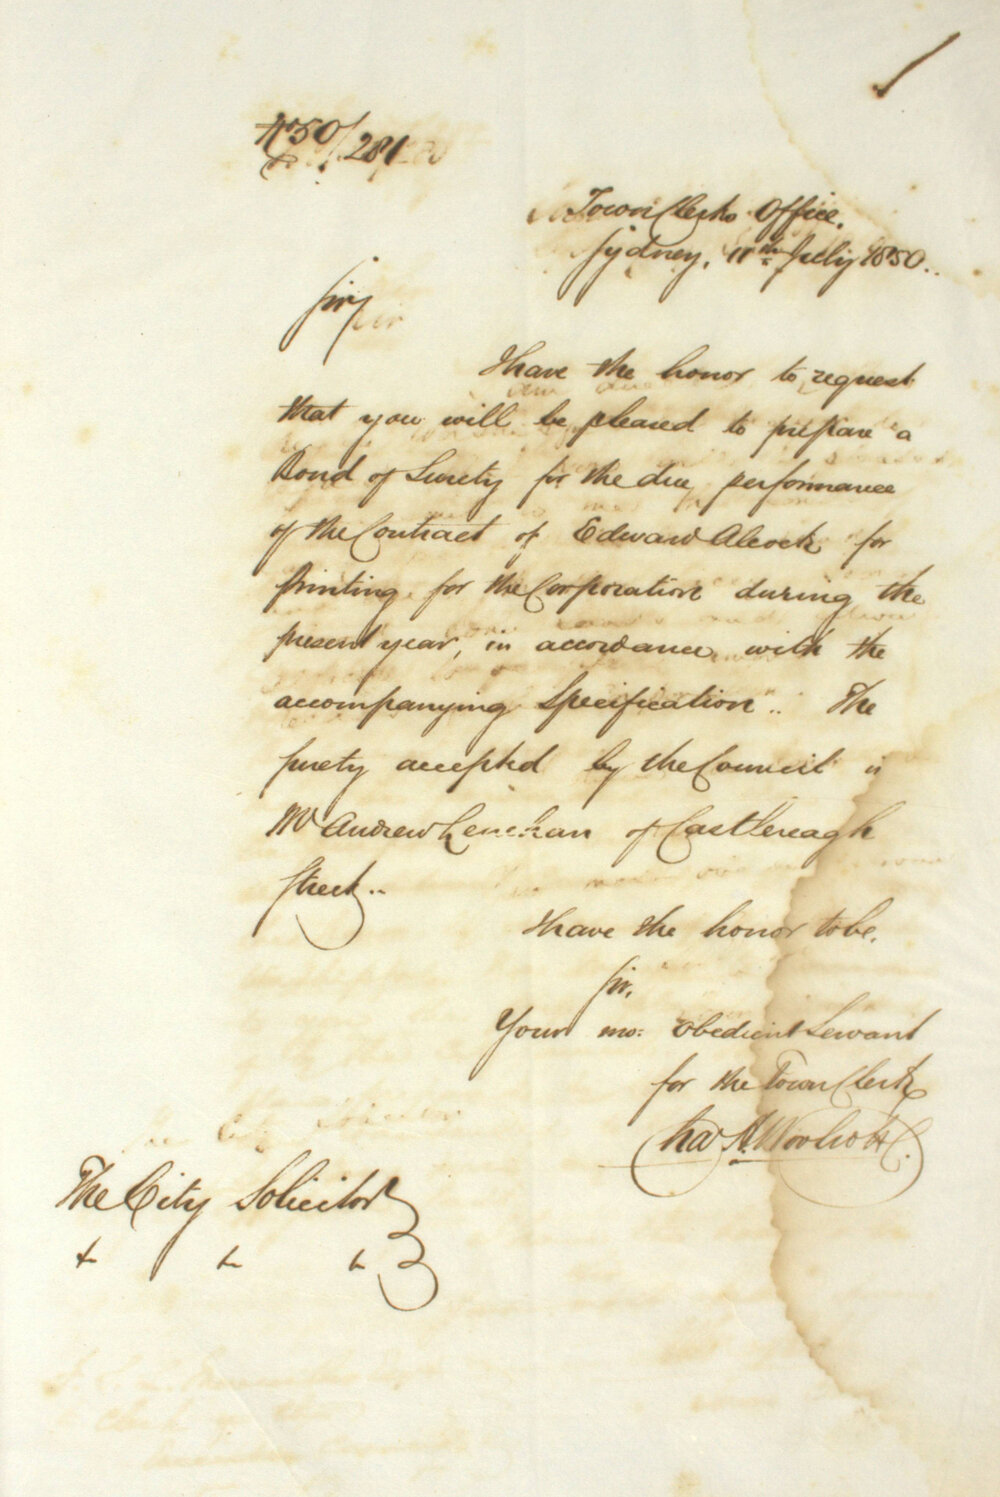 No 50/281
Town Clerks Office.
Sydney, 11th July 1850..
Sir,
I have the honor to request
that you will be pleased to prepare a
Bond of Surety for the due performance
of the Contract of Edward Alcock for
Printing for the Corporation during the
present year, in accordance with the
accompanying Specification.. The
surety accepted by the Council is
Mr Andrew Lenehan of Castlereagh
Street..
I have the honor to be,
Sir,
Your mo: obedient Servant
for the Town Clerk
Chas H. Woolcott
The City Solicitor